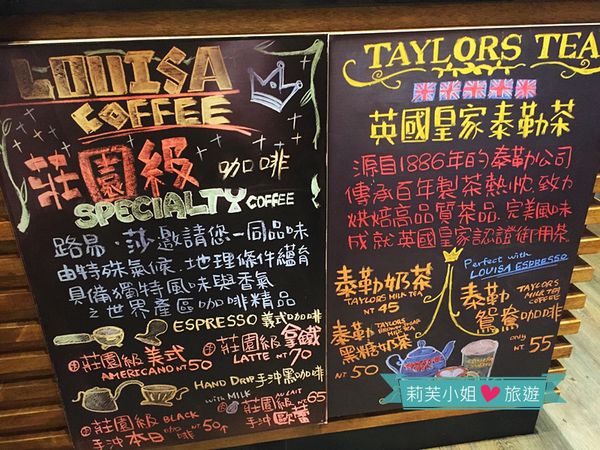 LOUISA
COFFEE
莊園級 咖啡
SPECIALTY COFFEE
路易.莎 邀請您一同品味
由特殊氣候、地理條件蘊育
具備獨特風味與香氣
之世界產區咖啡精品
ESPRESSO 義式咖啡
莊園級 美式
AMERICANO NT 50
莊園級 拿鐵
LATTE NT 70
HAND DROP 手沖黑咖啡
with MILK
莊園級 BLACK
手沖本日咖啡 NT 50↑
莊園級 AU LAIT NT 65
手沖 歐蕾
TAYLORS TEA
英國皇家泰勒茶
源自1886年的泰勒公司
傳承百年製茶熱忱 致力
烘焙高品質茶品.完美風味
成就英國皇家認證御用茶.
Perfect with
LOUISA ESPRESSO
泰勒奶茶
TAYLORS MILK TEA
NT 45
泰勒 TAYLORS BROWN SUGAR MILK TEA
黑糖奶茶
NT 50
泰勒 TAYLORS MILK TEA COFFEE
鴛鴦咖啡
only
NT 55
莉芙小姐 旅遊